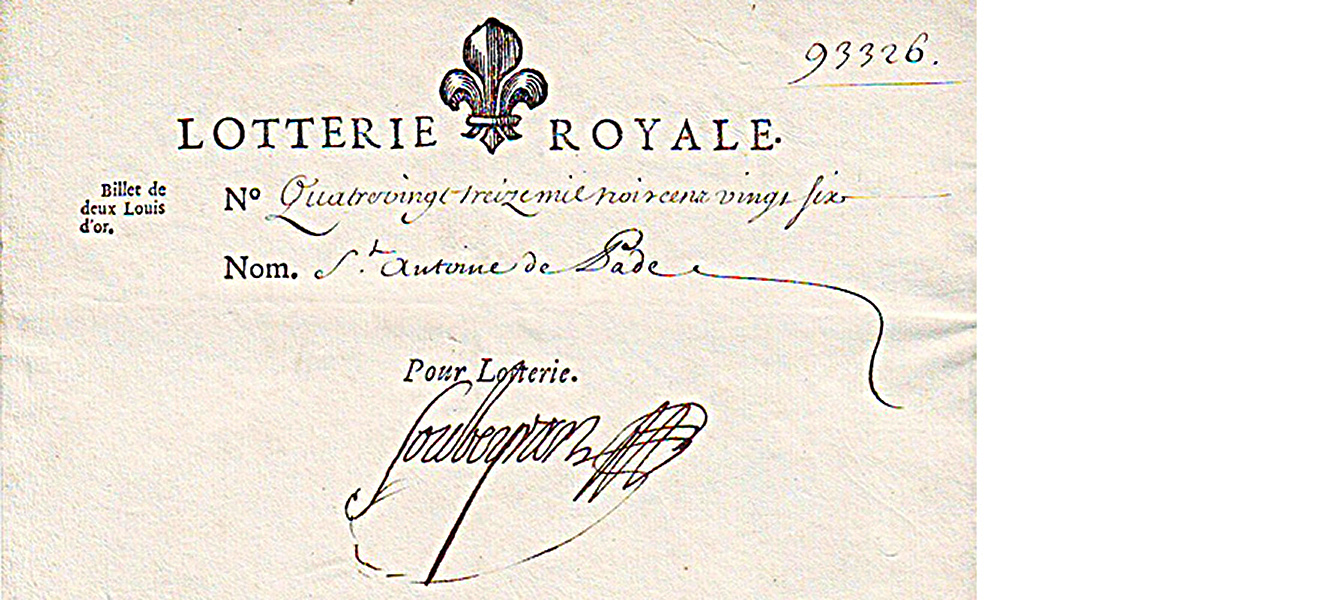 93326.
LOTTERIE ROYALE.
Billet de
deux Louis
d'or.
Nº Quatrevingt-treize mil trois cens vingt six
Nom. St. Antoine de Pade
Pour Lotterie.